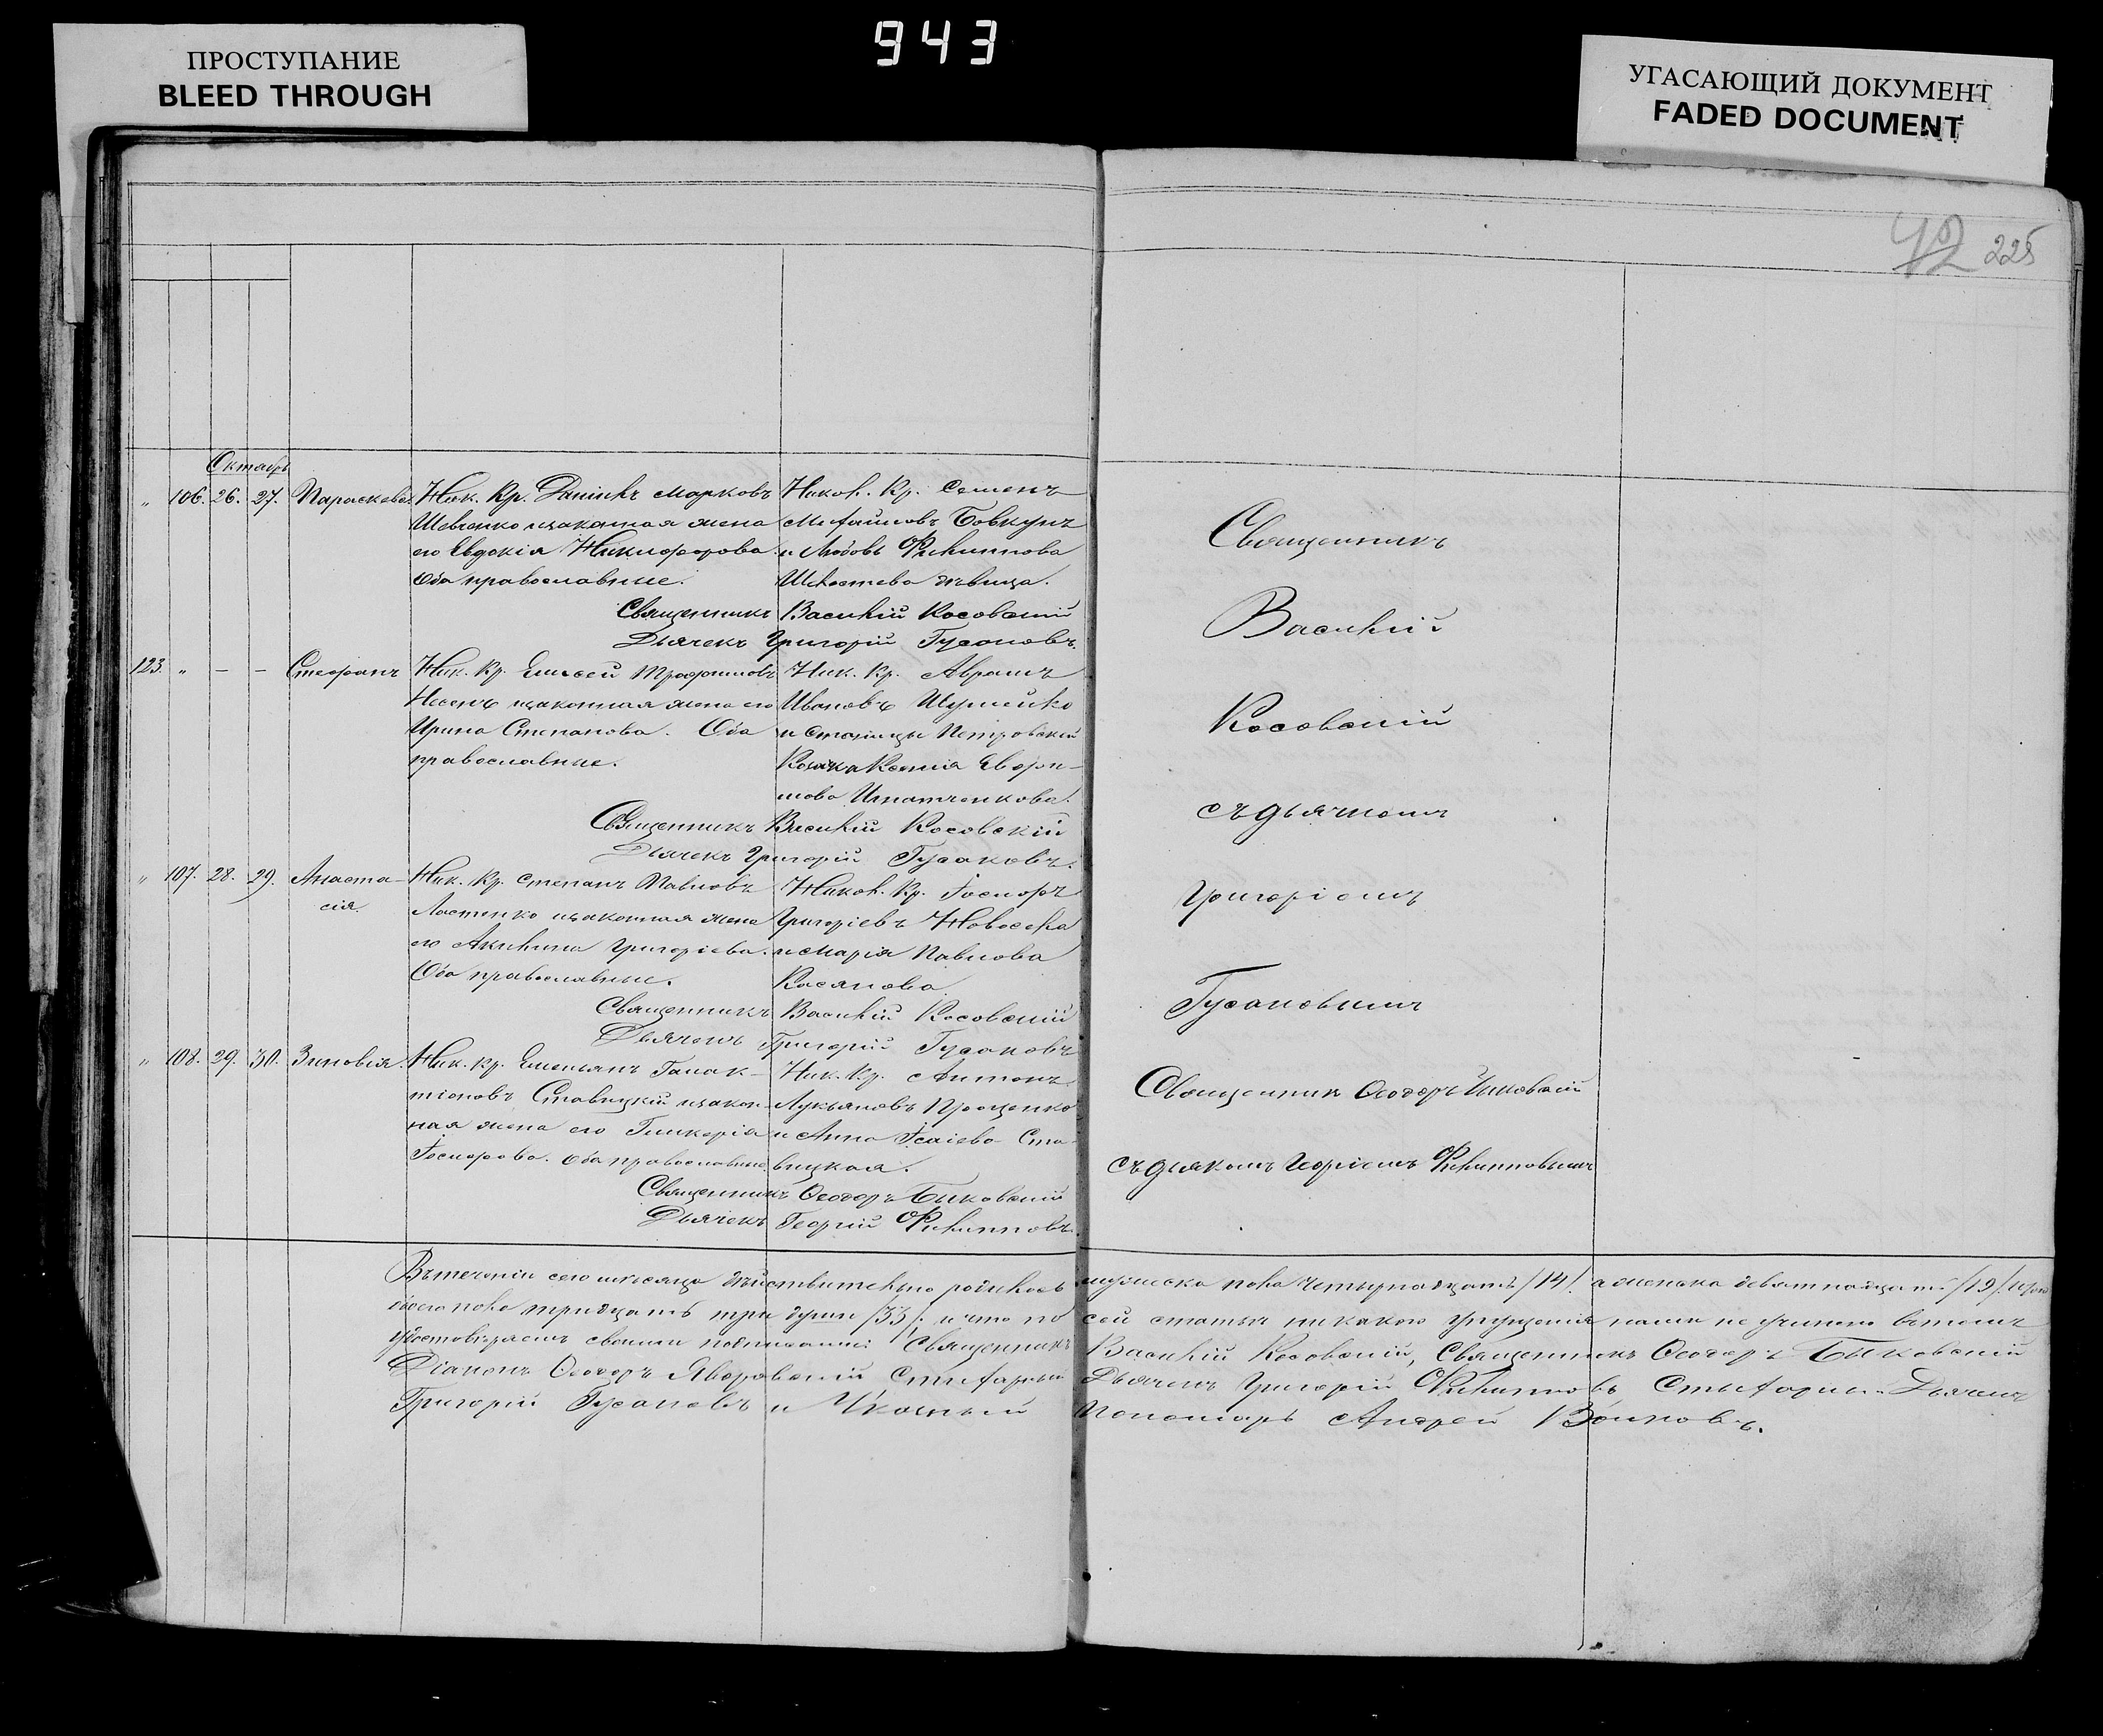 943
ПРОСТУПАНИЕ
BLEED THROUGH
УГАСАЮЩИЙ ДОКУМЕНТ
FADED DOCUMENT
42 225
Октябрь
" 106. 26. 27. Параскева
Ник. Кр. Данiилъ Марковъ
Шевченко изаконная жена
его Евдокiя Никифорова
Оба православные.
Никол. Кр. Семенъ
Михайловъ Бовкунъ
и Любовь Филиппова
девица.
Священникъ Василiй Косовскiй
Дьячекъ Григорiй Гусаковъ.
Священникъ
Василiй
Косовскiй
съ дьячкомъ
Григорiемъ
Гусаковымъ
123. " – – Стефанъ
Ник. Кр. Елисей Трофимовъ
изаконная жена его
Ирина Степанова. Оба
православные.
Ник. Кр. Аврамъ
Ивановъ
и Станицы Петровской
Козачка Ксенiя Евфи-
мова Игнатченкова.
Священникъ Василiй Косовскiй
Дьячекъ Григорiй Гусаковъ.
" 107. 28. 29. Анаста-
сiя.
Ник. Кр. Степанъ Павловъ
изаконная жена
его Акилина Григорiева.
Оба православные.
Никол. Кр. Iосифъ
Григорiевъ Новосела
и Марiя Павлова
Касянова
Священникъ Василiй Косовскiй
Дьячекъ Григорiй Гусаковъ
" 108. 29. 30. Зиновiя.
Ник. Кр. Емельянъ Галак-
тiоновъ Ставицкiй изакон-
ная жена его Гликерiя
Iосифова. Оба православные
Ник. Кр. Антонъ
Лукьяновъ Проценко
и Анна Исаiева Ста-
вицкая.
Священникъ Феодоръ Быковскiй
Дьячекъ Георгiй Филипповъ.
Священникъ Феодоръ Быковскiй
съ дьякомъ Георгiемъ Филипповымъ
Въ теченiи сего месяца действительно родилось мужеска пола четырнадцать /14/. а женска девятнадцать /19/.
обоего пола тридцать три души /33/. и что по сей статьи никакого упущенiя нами не учинено в томъ
удостоверяемъ своими подписами: Священникъ Василiй Косовскiй, Священникъ Феодоръ Быковскiй
Дiаконъ Феодоръ Яворовскiй Стихарный Дьячекъ Григорiй Филипповъ Стихарный Дьячекъ
Григорiй Гусаковъ и Пономарь Андрей Воиновъ.